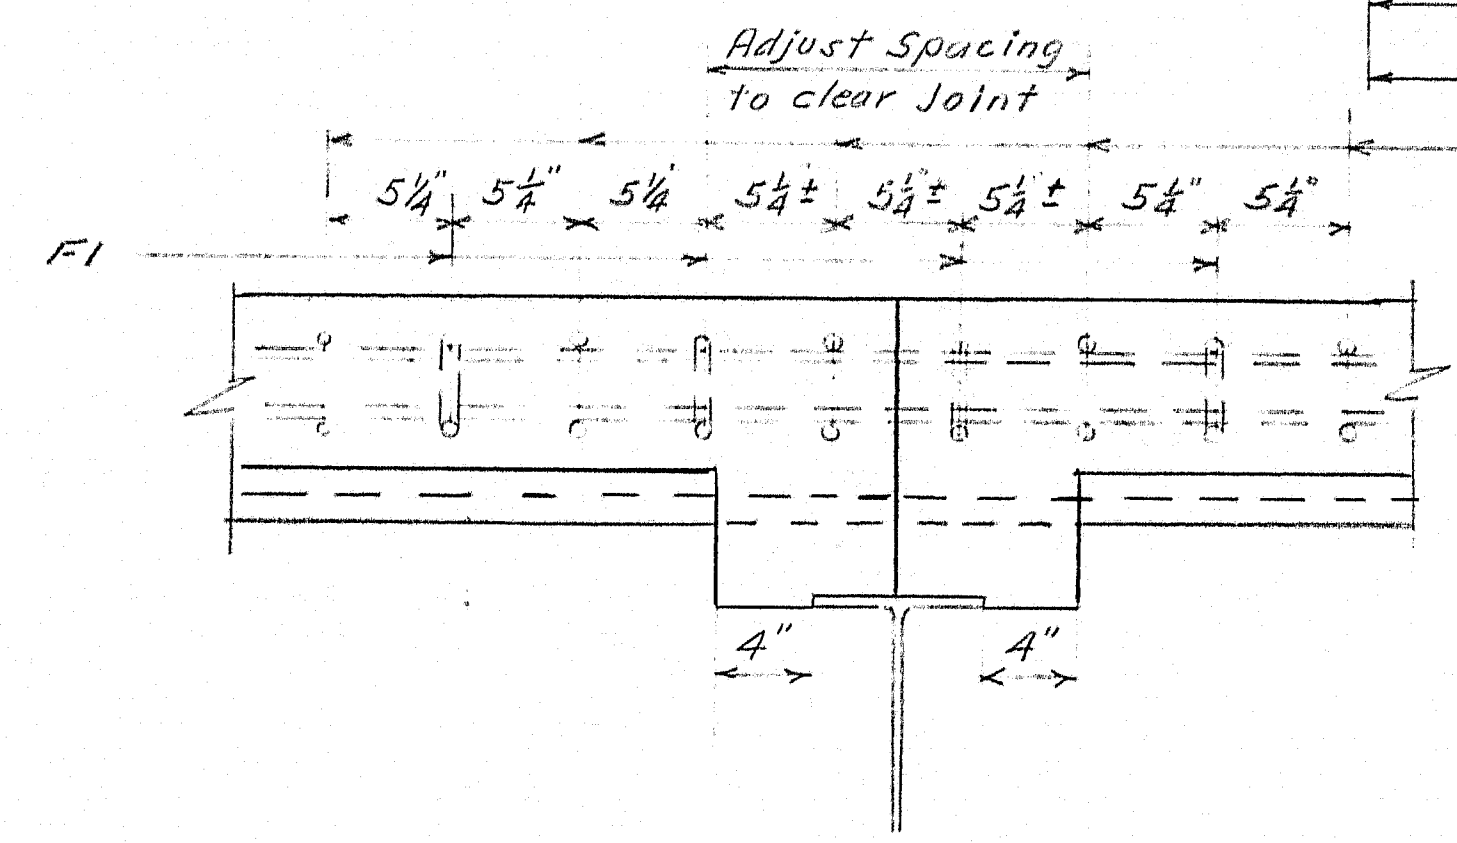 Adjust Spacing
to clear Joint
5 1/4" 5 1/4" 5 1/4" 5 1/4 ± 5 1/4" ± 5 1/4" ± 5 1/4" 5 1/4"
F1
4" 4"